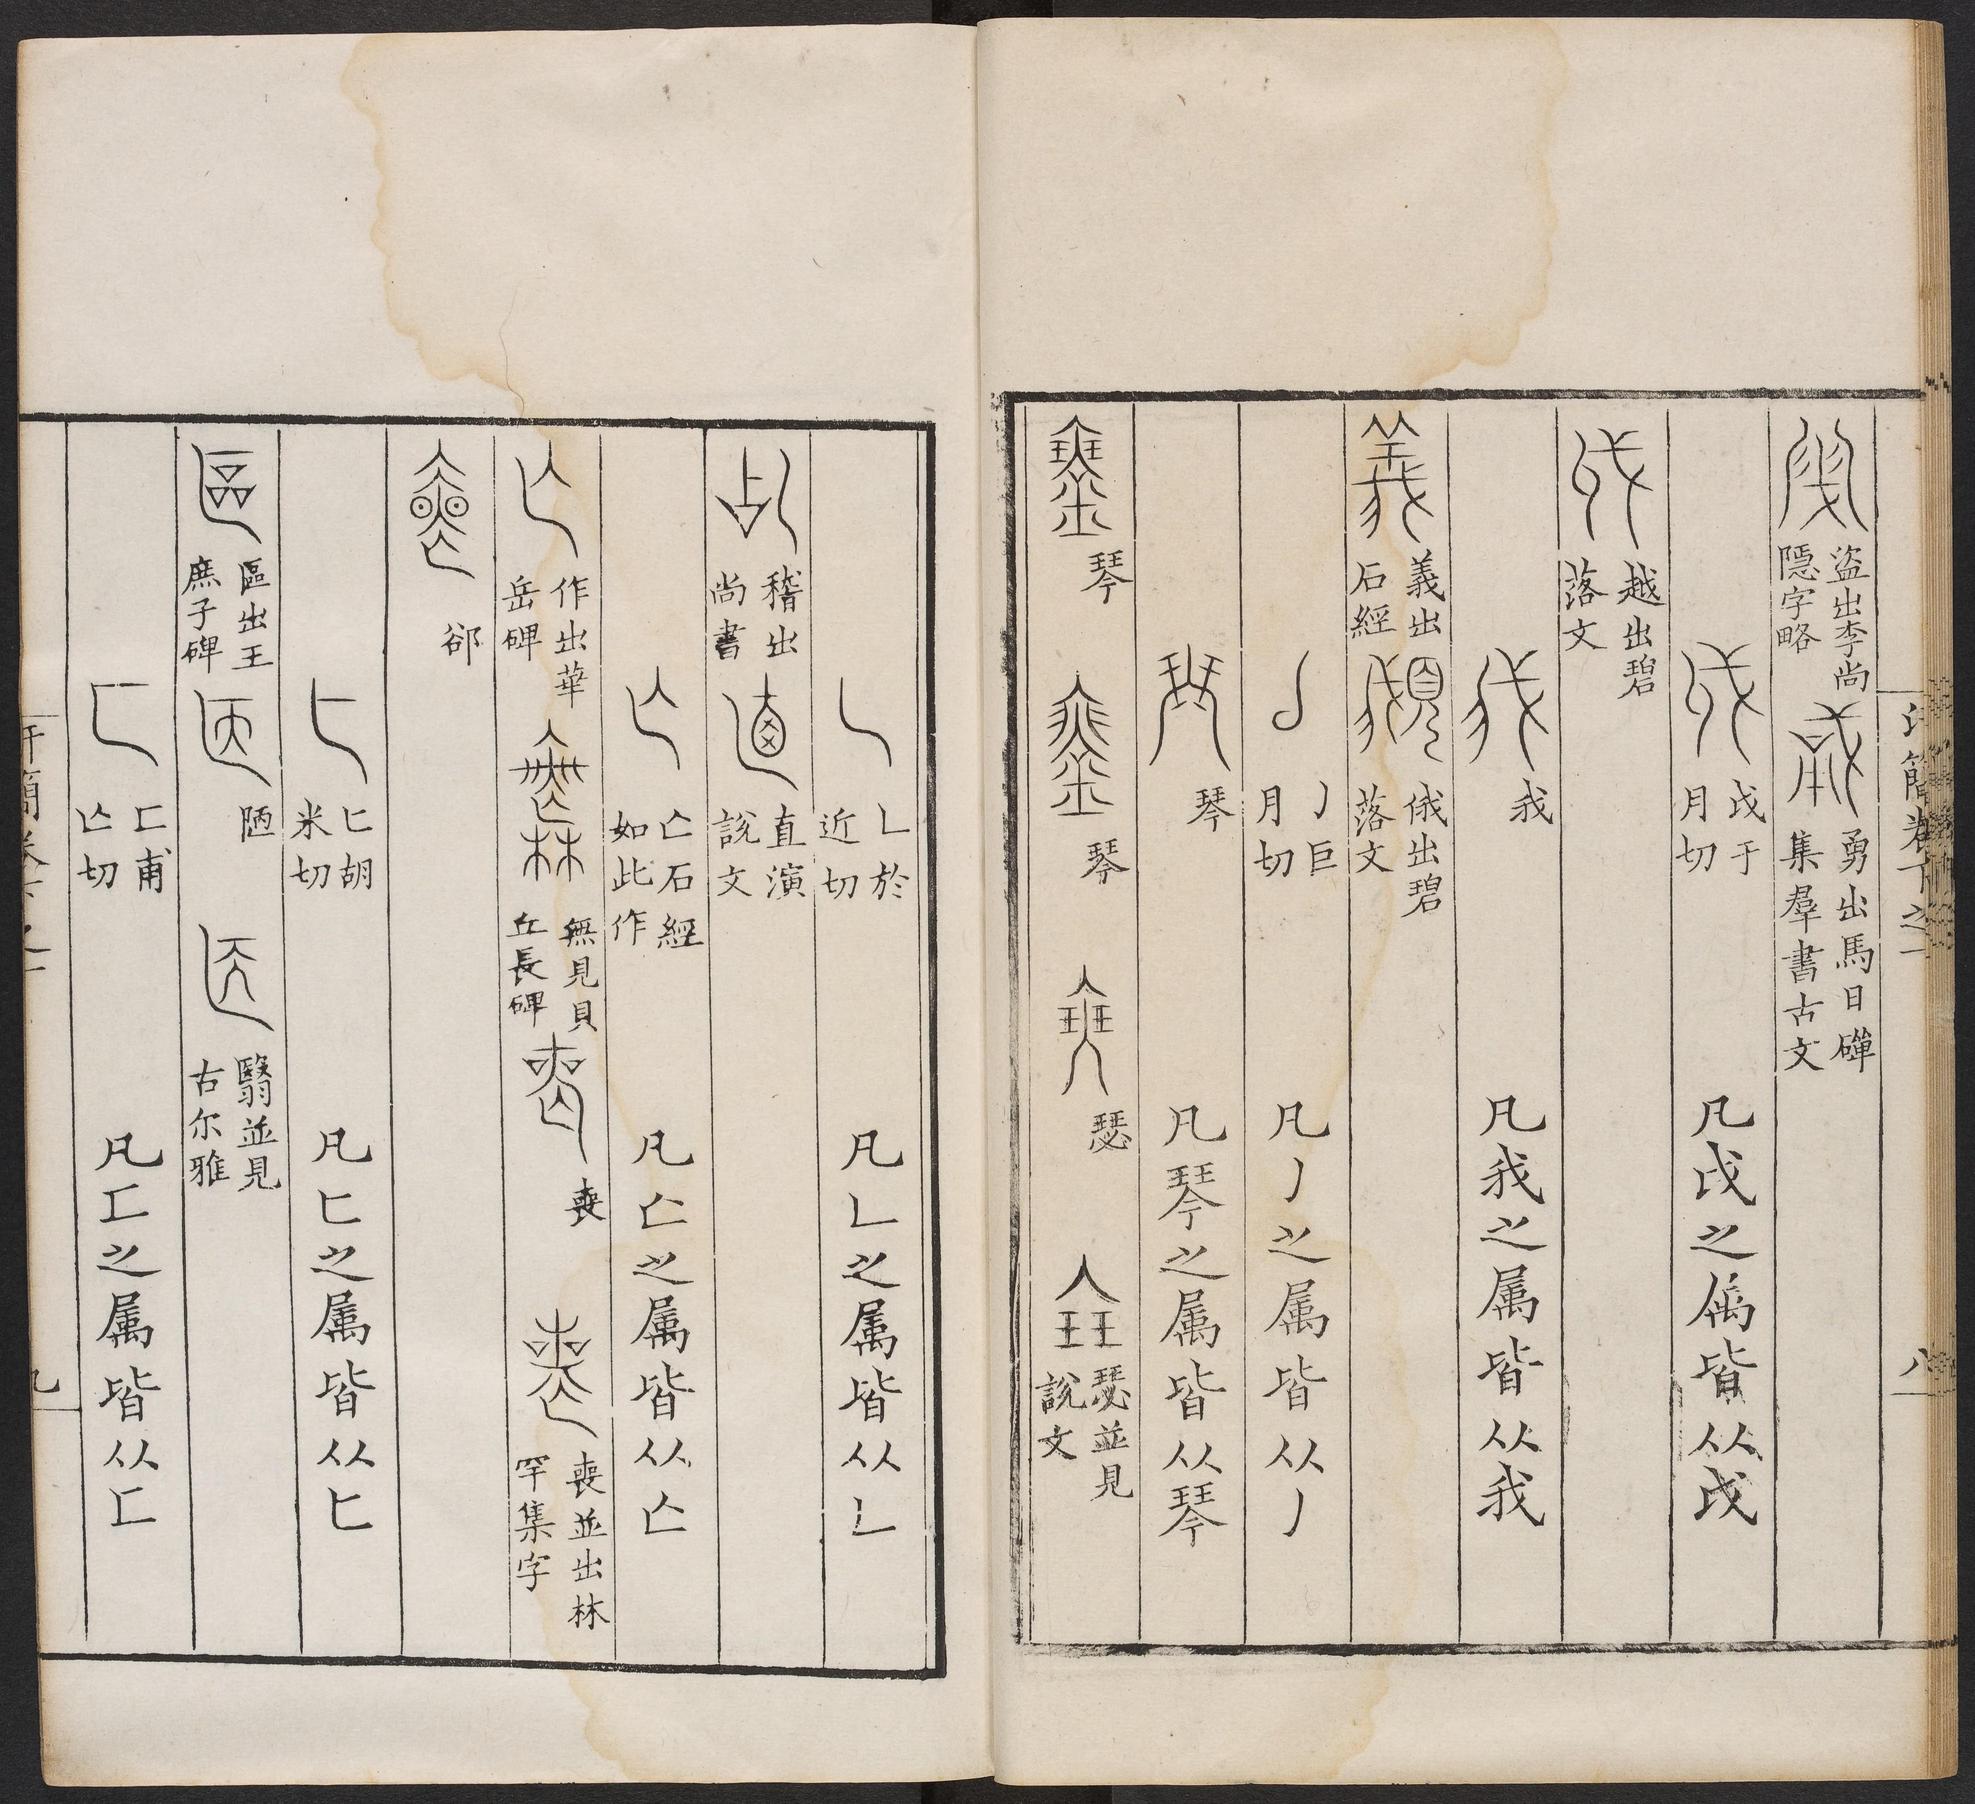 盜出李尚隱字略 勇出馬日磾集羣書古文
戉于月切 凡戉之属皆从戉
越出碧落文
我 凡我之属皆从我
義出石經 俄出碧落文
亅巨月切 凡亅之属皆从亅
琴 凡琴之属皆从琴
琴 琴 瑟 瑟並見說文
𠃊於近切 凡𠃊之属皆从𠃊
稽出尚書 直演說文
亾石經如此作 凡亾之属皆从亾
作出華岳碑 無見貝丘長碑 喪 喪並出林罕集字
郤
匸胡米切 凡匸之属皆从匸
區出王庶子碑 陋 翳並見古尔雅
匚甫亾切 凡匚之属皆从匚